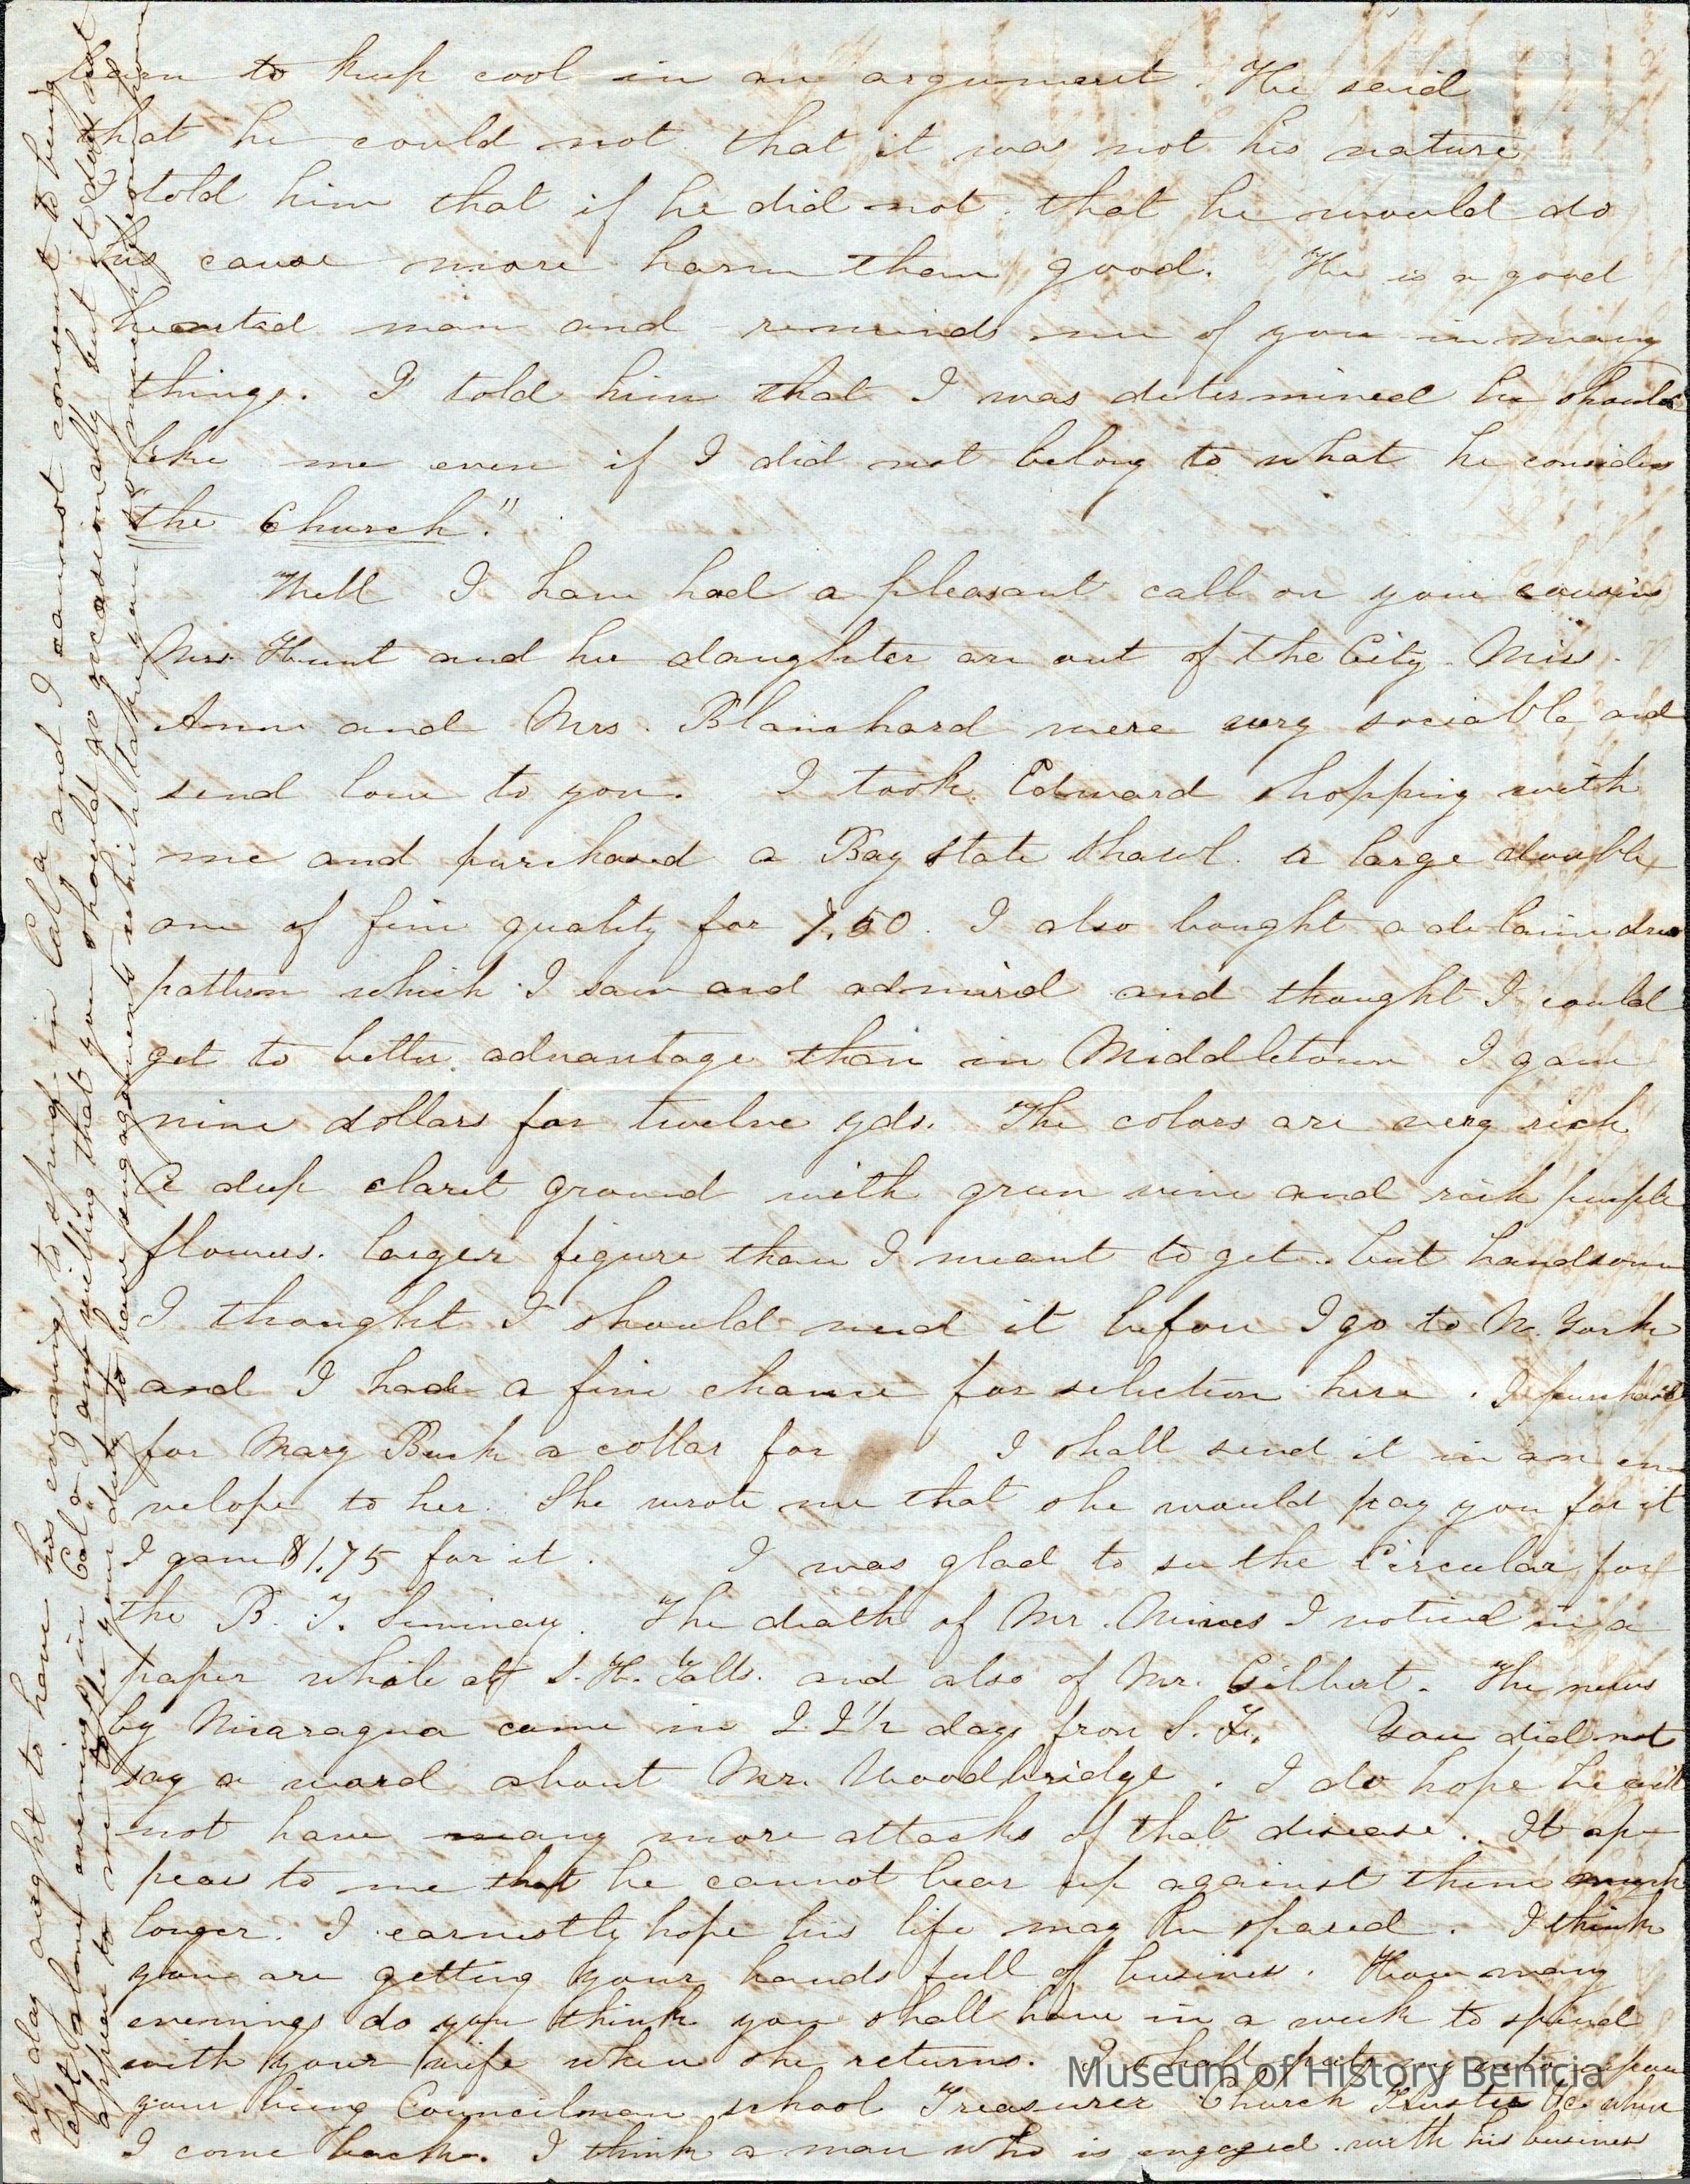 learn to keep cool in an argument. He said
that he could not that it was not his nature
I told him that if he did not that he would do
his cause more harm than good. He is a good
hearted man and reminds me of you in many
things. I told him that I was determined he should
like me even if I did not belong to what he considers
"the Church."
Well I have had a pleasant call on your cousins
Mrs. Hunt and her daughter are out of the City. Miss.
Ann and Mrs. Blanchard were very sociable and
send love to you. I took Edward shopping with
me and purchased a Bay State Shawl. a large double
one of fine quality for 7.50. I also bought a de laine dress
pattern which I saw and admired and thought I could
get to better advantage than in Middletown I gave
nine dollars for twelve yds. The colors are very rich
A deep claret ground with green vine and rich purple
flowers. larger figure than I meant to get.. but handsome
I thought I should need it before I go to N. York
and I had a fine chance for selection here. I purchased
for Mary Buck a collar for I shall send it in an en-
velope to her. She wrote me that she would pay you for it
I gave $1.75 for it. I was glad to see the Circular for
the B. F. Seminary. The death of Mr. Mines I noticed in a
paper while at S. H. Falls. and also of Mr. Gilbert. The news
by Nicaragua came in 22 1/2 days from S. F. You did not
say a word about Mr. Woodbridge. I do hope he will
not have many more attacks of that disease.. It ap-
pears to me that he cannot bear up against them much
longer. I earnestly hope his life may be spared. I think
you are getting your hands full of business. How many
evenings do you think you shall have in a week to spend
with your wife when she returns. I shall put my veto upon
your being Councilman school Treasurer Church Trustee &c. when
I come back. I think a man who is engaged with his business
all day ought to have his evenings to spend in Cal a and I cannot consent to being
left alone evenings in Cal a I am willing that you should go occasionally but it does not
appear to me to be your duty to have engagements which take you so much from
Museum of History Benicia